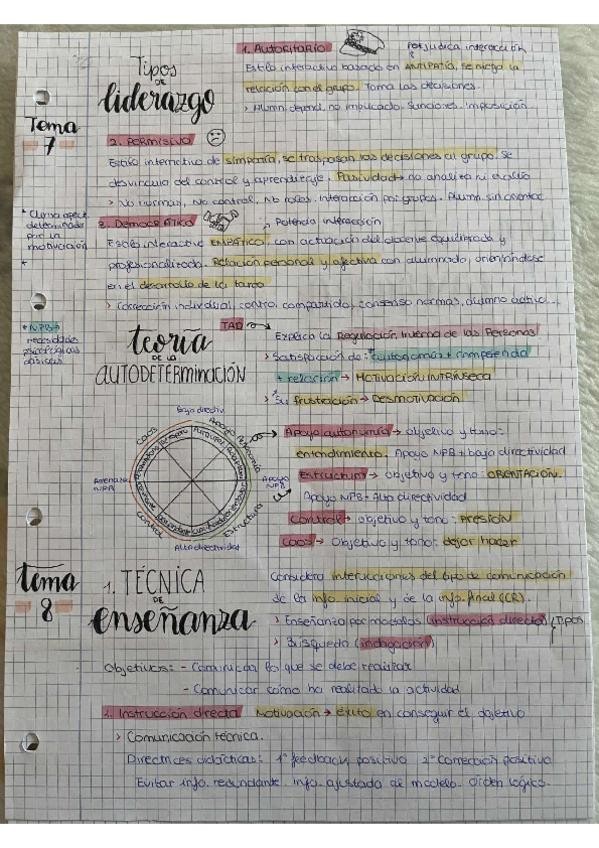 Tema
7
Tipos
DE
liderazgo
1. Autoritario
Perjudica interacción
Estilo interactivo basado en ANTIPATÍA, se niega la
relación con el grupo. Toma las decisiones.
> Alumn. depend. no implicado. Sanciones. Imposición.
2. Permisivo
Estilo interactivo de simpatía, se traspasan las decisiones al grupo. Se
desvincula del control y aprendizaje. Pasividad → no analiza ni evalúa
> No normas, No control, No roles. interacción por grupos. Alumn. sin orientac
3. Democrático
> Potencia interacción
Estilo interactivo EMPÁTICO, con actuación del docente equilibrada y
profesionalizada. Relación personal y afectiva con alumnado, orientándose
en el desarrollo de la tarea
> Corrección individual, control compartido, consenso normas, alumno activo...
* Clima
determinado
por la
motivación
* NPB →
necesidades
psicológicas
básicas
teoría
DE LA
AUTODETERMINACIÓN
TAD
Explica la Regulación Interna de las Personas
> Satisfacción de: * autonomía + competencia
+ relación → MOTIVACIÓN INTRÍNSECA
> Su frustración → DESMOTIVACIÓN
Bajo directiv.
Caos
Apoyo Autonomía
Amenaza
NPB
Apoyo
NPB
Control
Estructura
Alta directividad
Apoyo autonomía → objetivo y tono:
entendimiento. Apoyo NPB + bajo directividad
Estructura → objetivo y tono: ORIENTACIÓN.
Apoyo NPB + Alta directividad
Control → objetivo y tono: PRESIÓN
Caos → Objetivo y tono: dejar hacer
Tema
8
1. TÉCNICA
DE
enseñanza
Considera interacciones del tipo de comunicación
de la info. inicial y de la info. final (CR).
> Enseñanza por modelos (instrucción directa)
> Búsqueda (indagación)
Tipos
Objetivos: - Comunicar lo que se debe realizar
- Comunicar cómo ha realizado la actividad
1. Instrucción directa
Motivación → éxito en conseguir el objetivo
> Comunicación técnica.
Directrices didácticas: 1º feedback positivo 2º Corrección positivo
Evitar info. redundante. Info. ajustada al modelo. Orden lógico.